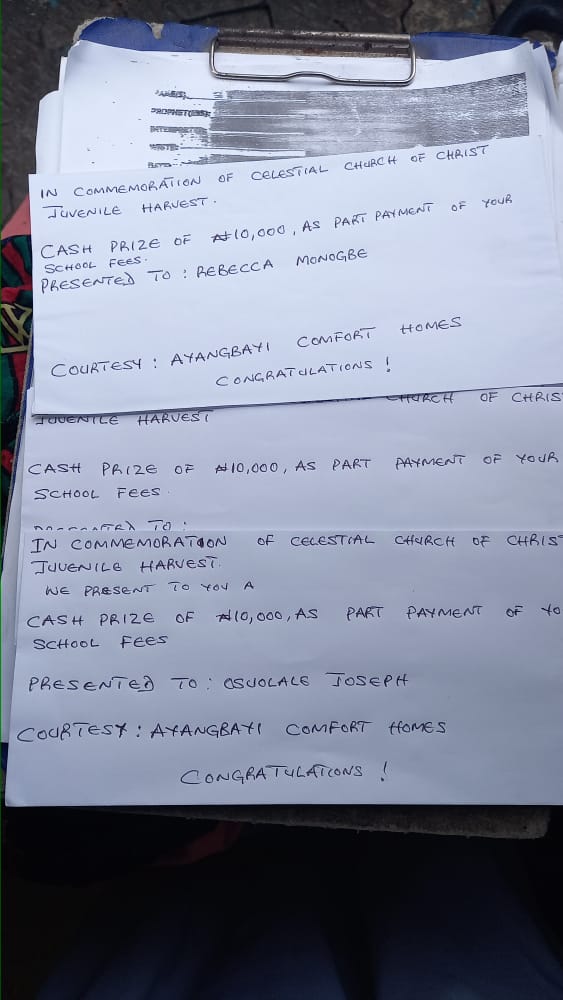 PROPHET(ESS)
IN COMMEMORATION OF CELESTIAL CHURCH OF CHRIST
JUVENILE HARVEST.
CASH PRIZE OF ₦10,000, AS PART PAYMENT OF YOUR
SCHOOL FEES.
PRESENTED TO : REBECCA MONOGBE
COURTESY : AYANGBAYI COMFORT HOMES
CONGRATULATIONS !
CHURCH OF CHRIS
JUVENILE HARVEST
CASH PRIZE OF ₦10,000, AS PART PAYMENT OF YOUR
SCHOOL FEES.
TO :
IN COMMEMORATION OF CELESTIAL CHURCH OF CHRIST
JUVENILE HARVEST.
WE PRESENT TO YOU A
CASH PRIZE OF ₦10,000, AS PART PAYMENT OF YO
SCHOOL FEES
PRESENTED TO : OSUOLALE JOSEPH
COURTESY : AYANGBAYI COMFORT HOMES
CONGRATULATIONS !